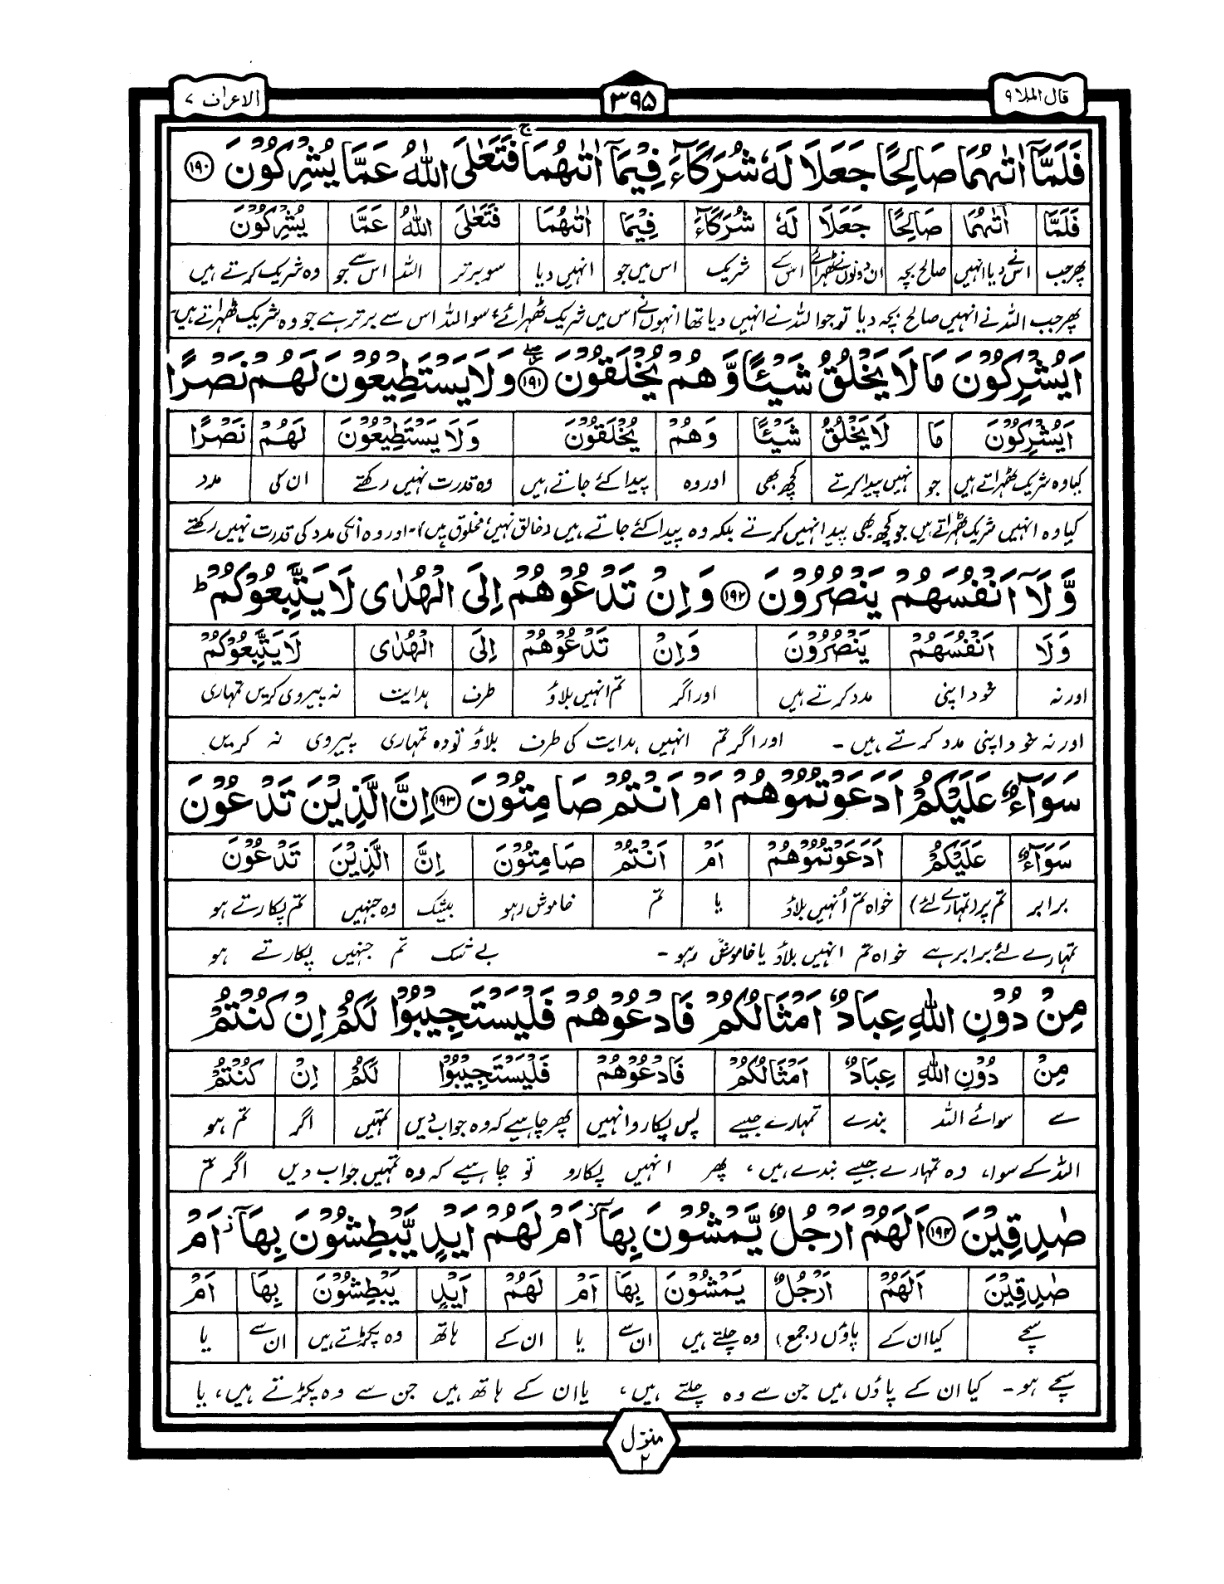 قال الملا ۹
۳۹۵
الاعراف ۷
فَلَمَّآ اٰتٰىهُمَا صَالِحًا جَعَلَا لَهٗ شُرَكَآءَ فِيْمَآ اٰتٰىهُمَا ۚ فَتَعٰلَى اللّٰهُ عَمَّا يُشْرِكُوْنَ ﴿۱۹۰﴾
فَلَمَّآ اٰتٰىهُمَا صَالِحًا جَعَلَا لَهٗ شُرَكَآءَ فِيْمَا اٰتٰىهُمَا فَتَعٰلَى اللّٰهُ عَمَّا يُشْرِكُوْنَ
پھر جب اس نے دیا انہیں صالح بچہ ان دونوں نے ٹھہرائے اس کے شریک اس میں جو انہیں دیا سو برتر اللہ اس سے جو وہ شریک کرتے ہیں
پھر جب اللہ نے انہیں صالح بچہ دیا تو جو اللہ نے انہیں دیا تھا انہوں نے اس میں شریک ٹھہرائے، سو اللہ اس سے برتر ہے جو وہ شریک ٹھہراتے ہیں۔
اَيُشْرِكُوْنَ مَا لَا يَخْلُقُ شَيْـًٔا وَّهُمْ يُخْلَقُوْنَ ﴿۱۹۱﴾ وَلَا يَسْتَطِيْعُوْنَ لَهُمْ نَصْرًا
اَيُشْرِكُوْنَ مَا لَا يَخْلُقُ شَيْـًٔا وَهُمْ يُخْلَقُوْنَ وَلَا يَسْتَطِيْعُوْنَ لَهُمْ نَصْرًا
کیا وہ شریک ٹھہراتے ہیں جو نہیں پیدا کرتے کچھ بھی اور وہ پیدا کئے جاتے ہیں وہ قدرت نہیں رکھتے ان کی مدد
کیا وہ انہیں شریک ٹھہراتے ہیں جو کچھ بھی پیدا نہیں کرتے بلکہ وہ پیدا کئے جاتے ہیں (خالق نہیں مخلوق ہیں)۔ اور وہ انکی مدد کی قدرت نہیں رکھتے
وَّلَآ اَنْفُسَهُمْ يَنْصُرُوْنَ ﴿۱۹۲﴾ وَاِنْ تَدْعُوْهُمْ اِلَى الْهُدٰى لَا يَتَّبِعُوْكُمْ ؕ
وَلَا اَنْفُسَهُمْ يَنْصُرُوْنَ وَاِنْ تَدْعُوْهُمْ اِلَى الْهُدٰى لَا يَتَّبِعُوْكُمْ
اور نہ خود اپنی مدد کرتے ہیں اور اگر تم انہیں بلاؤ طرف ہدایت نہ پیروی کریں تمہاری
اور نہ خود اپنی مدد کرتے ہیں۔ اور اگر تم انہیں ہدایت کی طرف بلاؤ تو وہ تمہاری پیروی نہ کریں
سَوَآءٌ عَلَيْكُمْ اَدَعَوْتُمُوْهُمْ اَمْ اَنْتُمْ صَامِتُوْنَ ﴿۱۹۳﴾ اِنَّ الَّذِيْنَ تَدْعُوْنَ
سَوَآءٌ عَلَيْكُمْ اَدَعَوْتُمُوْهُمْ اَمْ اَنْتُمْ صَامِتُوْنَ اِنَّ الَّذِيْنَ تَدْعُوْنَ
برابر تم پر (تمہارے لئے) خواہ تم انہیں بلاؤ یا تم خاموش رہو بیشک وہ جنہیں تم پکارتے ہو
تمہارے لئے برابر ہے خواہ تم انہیں بلاؤ یا خاموش رہو۔ بے شک تم جنہیں پکارتے ہو
مِنْ دُوْنِ اللّٰهِ عِبَادٌ اَمْثَالُكُمْ فَادْعُوْهُمْ فَلْيَسْتَجِيْبُوْا لَكُمْ اِنْ كُنْتُمْ
مِنْ دُوْنِ اللّٰهِ عِبَادٌ اَمْثَالُكُمْ فَادْعُوْهُمْ فَلْيَسْتَجِيْبُوْا لَكُمْ اِنْ كُنْتُمْ
سے سوائے اللہ بندے تمہارے جیسے پس پکارو انہیں پھر چاہیے کہ وہ جواب دیں تمہیں اگر تم ہو
اللہ کے سوا، وہ تمہارے جیسے بندے ہیں، پھر انہیں پکارو تو چاہیے کہ وہ تمہیں جواب دیں اگر تم
صٰدِقِيْنَ ﴿۱۹۴﴾ اَلَهُمْ اَرْجُلٌ يَّمْشُوْنَ بِهَآ ؗ اَمْ لَهُمْ اَيْدٍ يَّبْطِشُوْنَ بِهَآ ؗ اَمْ
صٰدِقِيْنَ اَلَهُمْ اَرْجُلٌ يَمْشُوْنَ بِهَا اَمْ لَهُمْ اَيْدٍ يَبْطِشُوْنَ بِهَا اَمْ
سچے کیا ان کے پاؤں (جمع) وہ چلتے ہیں ان سے یا ان کے ہاتھ وہ پکڑتے ہیں ان سے یا
سچے ہو۔ کیا ان کے پاؤں ہیں جن سے وہ چلتے ہیں، یا ان کے ہاتھ ہیں جن سے وہ پکڑتے ہیں، یا
منزل ۲